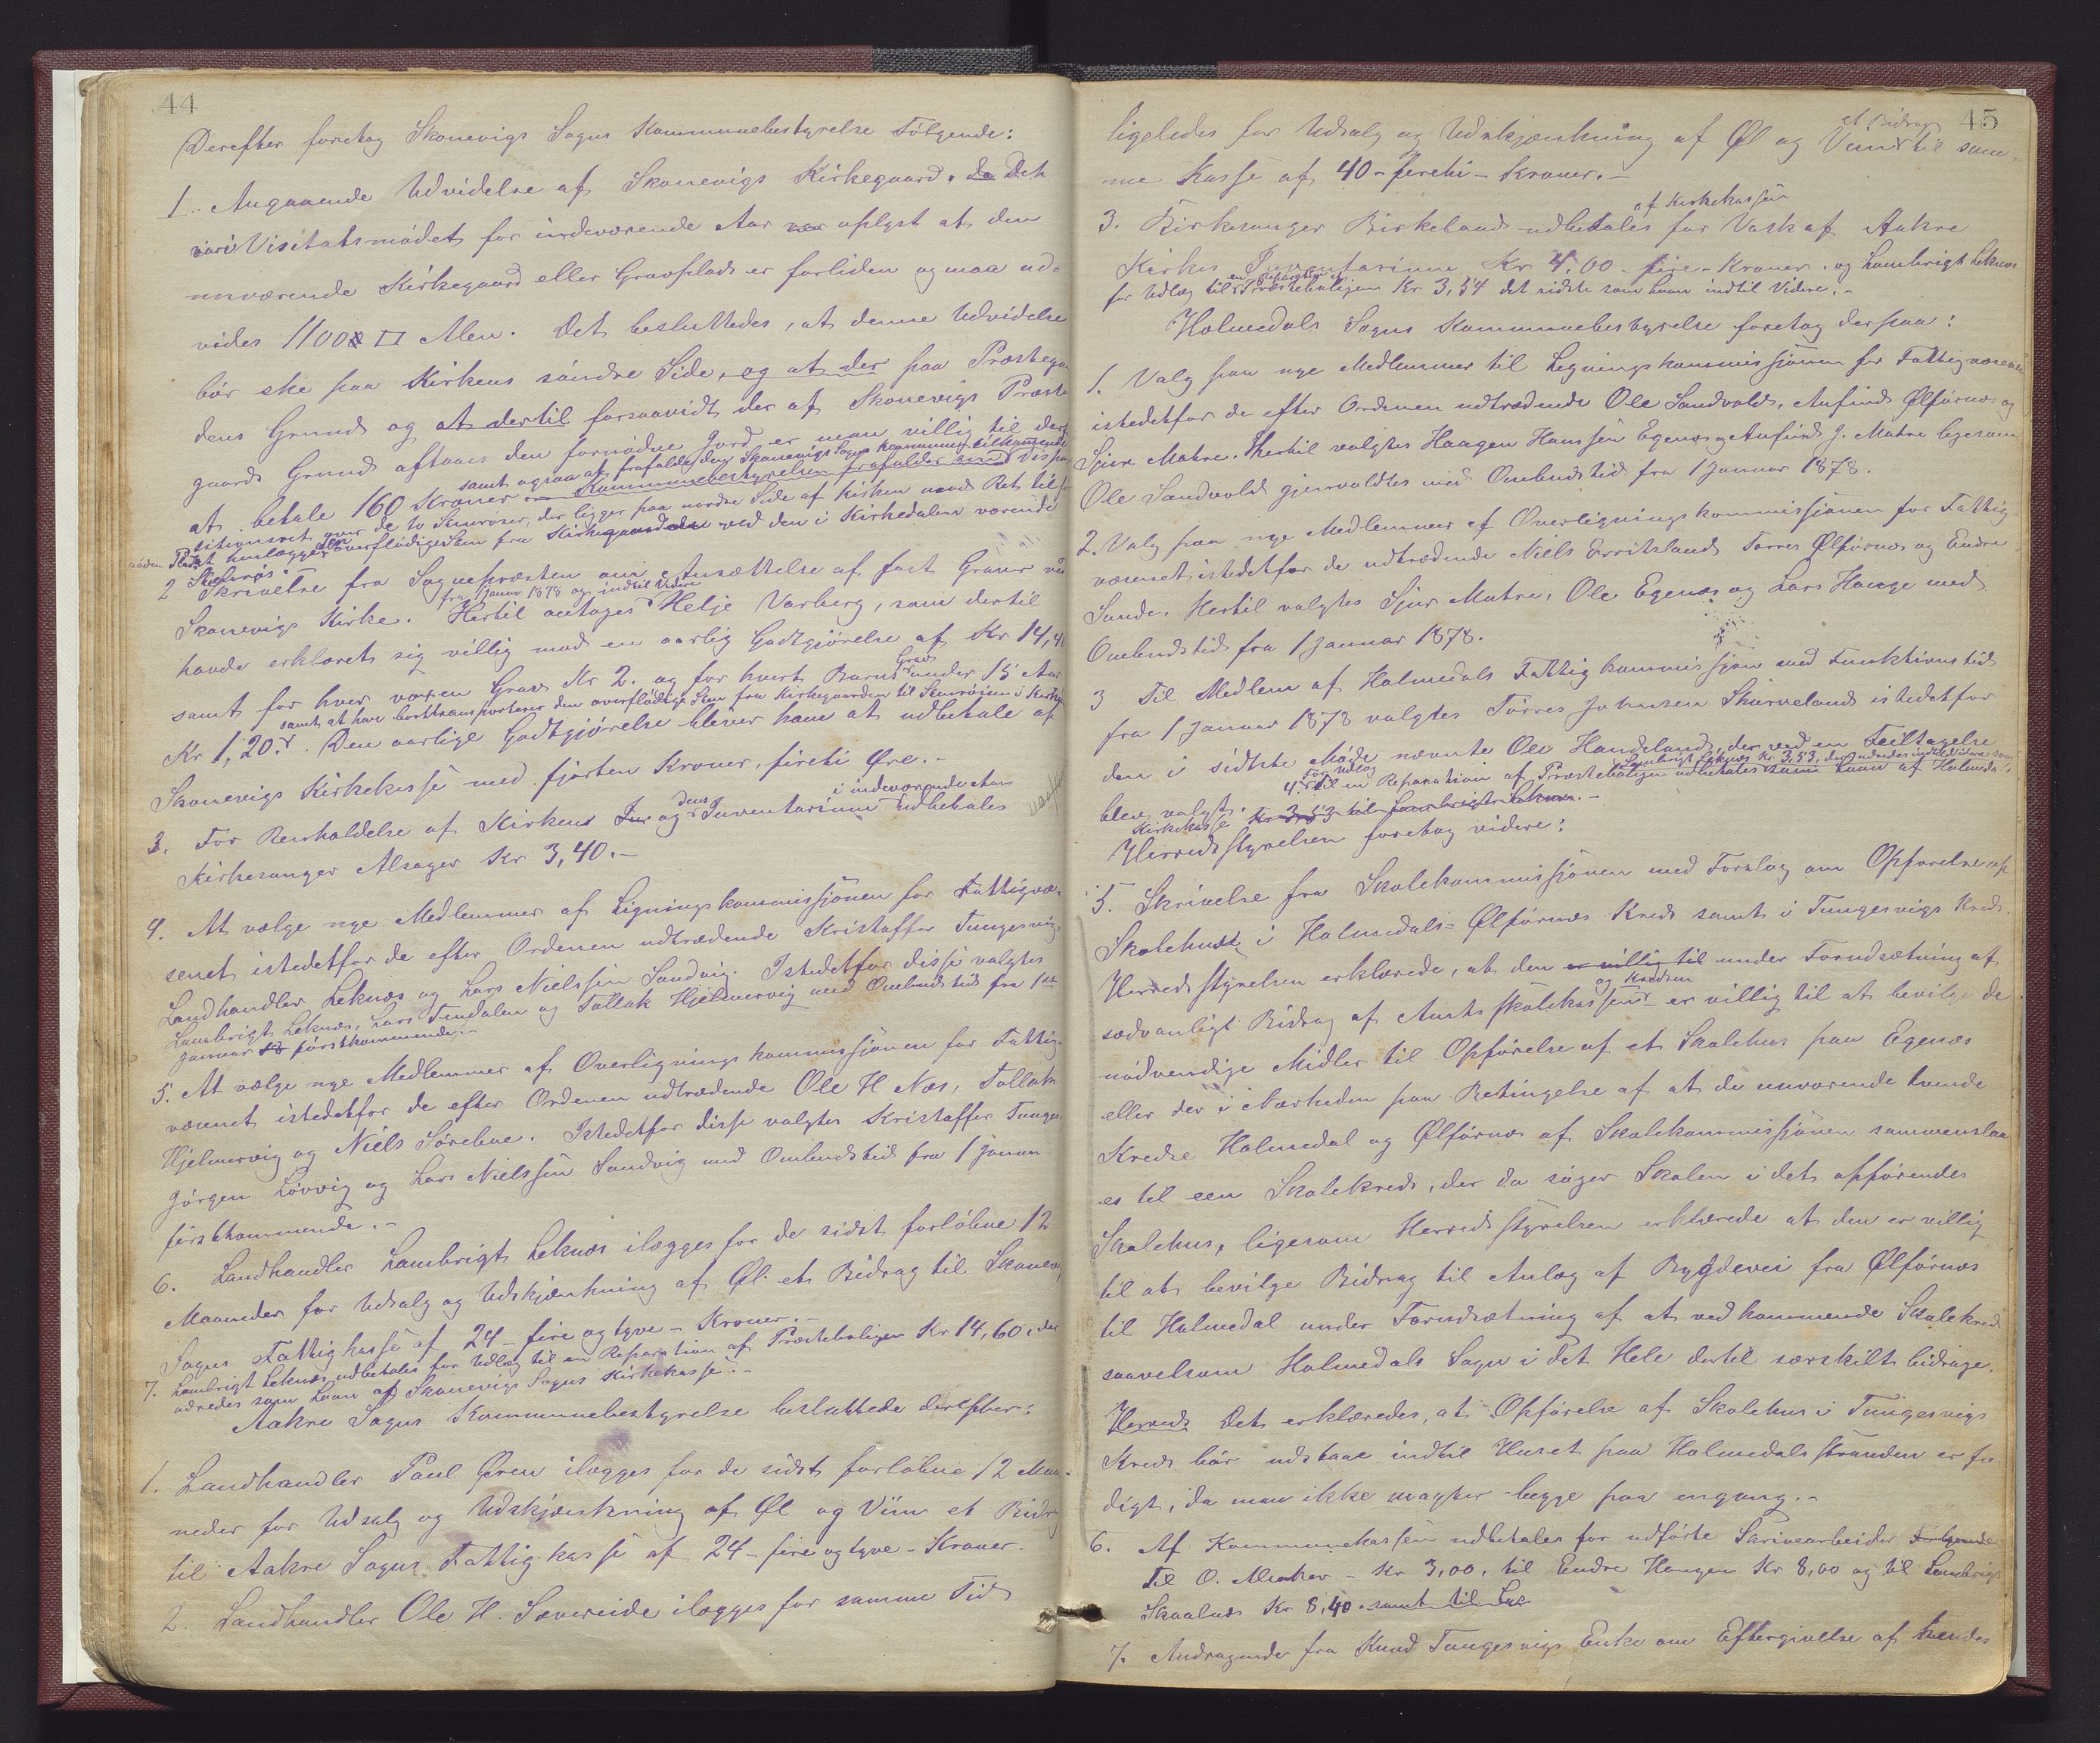 44
Derefter foretog Skonevigs Sogns Kommunebestyrelse Følgende:
1. Angaaende Udvidelse af Skonevigs Kirkegaard. da Det
var i Visitatsmødet for indeværende Aar var oplyst at den
nuværende Kirkegaard eller Gravplads er forliden og maa ud-
vides 1100 □ Alen. Det besluttedes, at denne Udvidelse
bør ske paa Kirkens søndre Side, og at der paa Præstegaar
dens Grund og at dertil forsaavidt der af Skonevigs Præste
gaards Grund aftaaes den fornødne Jord er man villig til derfor
at betale 160 Kroner
samt ogsaa at frafalde den Skonevigs Sogns Kommune tilkommende
Kommunebestyrelsen frafalder sin Dispo
sitionsret over de to Stenrøser, der ligger paa nordre Side af Kirken mod Ret til paa
anden Plads at henlægge den overflødige Sten fra Kirkegaarden ved den i Kirkedalen værende
Stenrøs.
2 Skrivelse fra Sognepræsten om Ansættelse af fast Graver ved
fra 1 Januar 1878 og indtil Videre
Skonevigs Kirke. Hertil antages Helje Varberg, som dertil
havde erklæret sig villig mod en aarlig Godtgjørelse af Kr 14,40
samt for hver voxen Grav Kr 2. og for hvert Barns Grav under 15 Aar
samt at han borttransporterer den overflødige Sten fra Kirkegaarden til Stenrøsen i Kirkedalen
Kr 1,20. Den aarlige Godtgjørelse bliver have at udbetale af
Skonevigs Kirkekasse med fjorten Kroner, fireti Øre.-
3. For Renholdelse af Kirkens Inv og dens Inventarium i indeværende Aar udbetales
Kirkesanger Alsager Kr 3,40.-
4. At vælge nye Medlemmer af Ligningskommissjonen for Fattigvæ-
senet istedetfor de efter Ordenen udtrædende Kristoffer Tungesvig,
Landhandler Leknæs og Lars Nielssen Sandvig. Istedetfor disse valgtes
Lambrigt Leknæs, Lars Tendalen og Tollak Hjelmervig med Ombudstid fra 1ste
Januar 18 førstkommende.-
5. At vælge nye Medlemmer af Overligningskommissjonen for Fattig-
væsenet istedetfor de efter Ordenen udtrædende Ole H Næs, Tollak
Hjelmervig og Niels Sørebøe. Istedetfor disse valgtes Kristoffer Tunges
Jørgen Løvvig og Lars Nielssen Sandvig med Ombudstid fra 1 Januar
førstkommende.-
6. Landhandler Lambrigt Leknæs ilægges for de sidst forløbne 12
Maaneder for Udsalg og Udskjænkning af Øl et Bidrag til Skonevigs
Sogns Fattigkasse af 24 - fire og tyve - Kroner.-
7. Lambrigt Leknæs udbetales for Udlæg til en Reparation af Præsteboligen Kr 14,60, der
udredes som Laan af Skonevigs Sogns Kirkekasse.-
Aakre Sogns Kommunebestyrelse besluttede derefter:
1. Landhandler Paul Øren ilægges for de sidst forløbne 12 Maa-
neder for Udsalg og Udskjænkning af Øl og Viin et Bidrag
til Aakre Sogns Fattigkasse af 24 - fire og tyve - Kroner.
2. Landhandler Ole H. Sævereide ilægges for samme Tid
45
ligeledes for Udsalg og Udskjænkning af Øl og Viin et Bidrag til sam-
me Kasse af 40 - fireti - Kroner.-
3. Kirkesanger Birkeland udbetales af Kirkekassen for Vask af Aakre
Kirkes Inventarium Kr 4,00 - fire - Kroner. og Lambrigt Leknæs
for Udlæg til en Reparation af Præsteboligen Kr 3,54 det sidste som Laan indtil Videre.-
Holmedals Sogns Kommunebestyrelse foretog derpaa:
1. Valg paa nye Medlemmer til Ligningskommissjonen for Fattigvæsenet
istedetfor de efter Ordenen udtrædende Ole Sandvold, Anfind Ølførnæs og
Sjur Matre. Hertil valgtes Haagen Hanssen Egenæs og Anfind J. Matre ligesom
Ole Sandvold gjenvaldtes med Ombudstid fra 1 Januar 1878.
2. Valg paa nye Medlemmer af Overligningskommissjonen for Fattig-
væsenet istedetfor de udtrædende Niels Erritsland Torres Ølførnæs og Endre
Sunde. Hertil valgtes Sjur Matre, Ole Egenæs og Lars Hauge med
Ombudstid fra 1 Januar 1878.
3 Til Medlem af Holmedals Fattigkommissjon med Funktionstid
fra 1 Januar 1878 valgtes Torres Johnsen Skurveland istedetfor
den i sidste Møde nævnte Ole Handeland, der ved en Feiltagelse
blev valgt.
4. For Udlæg til en Reparation af Præsteboligen udbetales Lambrigt Leknæs Kr 3,53, der udredes indtil videre som Laan af Holmedals
Kirkekasse Kr 3,53 til Lambrigt Leknæs.-
Herredsstyrelsen foretog videre:
5. Skrivelse fra Skolekommissjonen med Forslag om Opførelse af
Skolehus i Holmedals-Ølførnæs Kreds samt i Tungesvigs Kreds.
Herredsstyrelsen erklærede, at den er villig til under Forudsætning af
sædvanligt Bidrag af Amtsskolekassen og Kredsen er villig til at bevilge de
nødvendige Midler til Opførelse af et Skolehus paa Egenæs
eller der i Nærheden paa Betingelse af at de nuværende tvende
Kredse Holmedal og Ølførnæs af Skolekommissjonen sammenslaa
es til een Skolekreds, der da søger Skolen i det opførendes
Skolehus, ligesom Herredsstyrelsen erklærede at den er villig
til at bevilge Bidrag til Anlæg af Bygdevei fra Ølførnæs
til Holmedal under Forudsætning af at vedkommende Skolekreds
saavelsom Holmedals Sogn i det Hele dertil særskilt bidrage.
Herreds Det erklæredes, at Opførelse af Skolehus i Tungesvigs
Kreds bør udstaae indtil Huset paa Holmedalsstranden er fær
digt, da man ikke magter begge paa engang.-
6. Af Kommunekassen udbetales for udførte Skrivearbeider Følgende
Til O. Meahav - Kr 3,00, til Endre Haugen Kr 8,00 og til Lambrigt
Skaalnæs Kr 8,40. samt til Lar
7. Andragende fra Knud Tungesvigs Enke om Eftergivelse af hendes